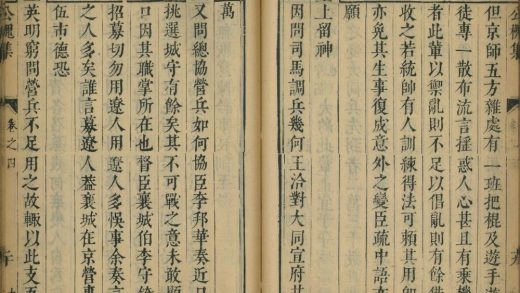 但京師五方雜處有一班把棍及遊手遊
徒專一散布流言搖惑人心甚且有乘機
者此輩以禦亂則不足以倡亂則有餘借
收之若統帥有人訓練得法可賴其用如
亦免其生事復成意外之變臣疏中語亦
願
上留神
因問司馬調兵幾何王洽對大同宣府甘
萬
又問總協營兵如何協臣李邦華奏近日
挑選城守有餘矣其不可戰之意未敢顯
口因其職掌所在也督臣襄城伯李守錡
招募切勿用遼人用遼人多悞事余奏言
之人多矣誰言募遼人葢襄城在京營專
伍市德恐
英明窮問營兵不足用之故輙以此支吾
公槐集
卷之四